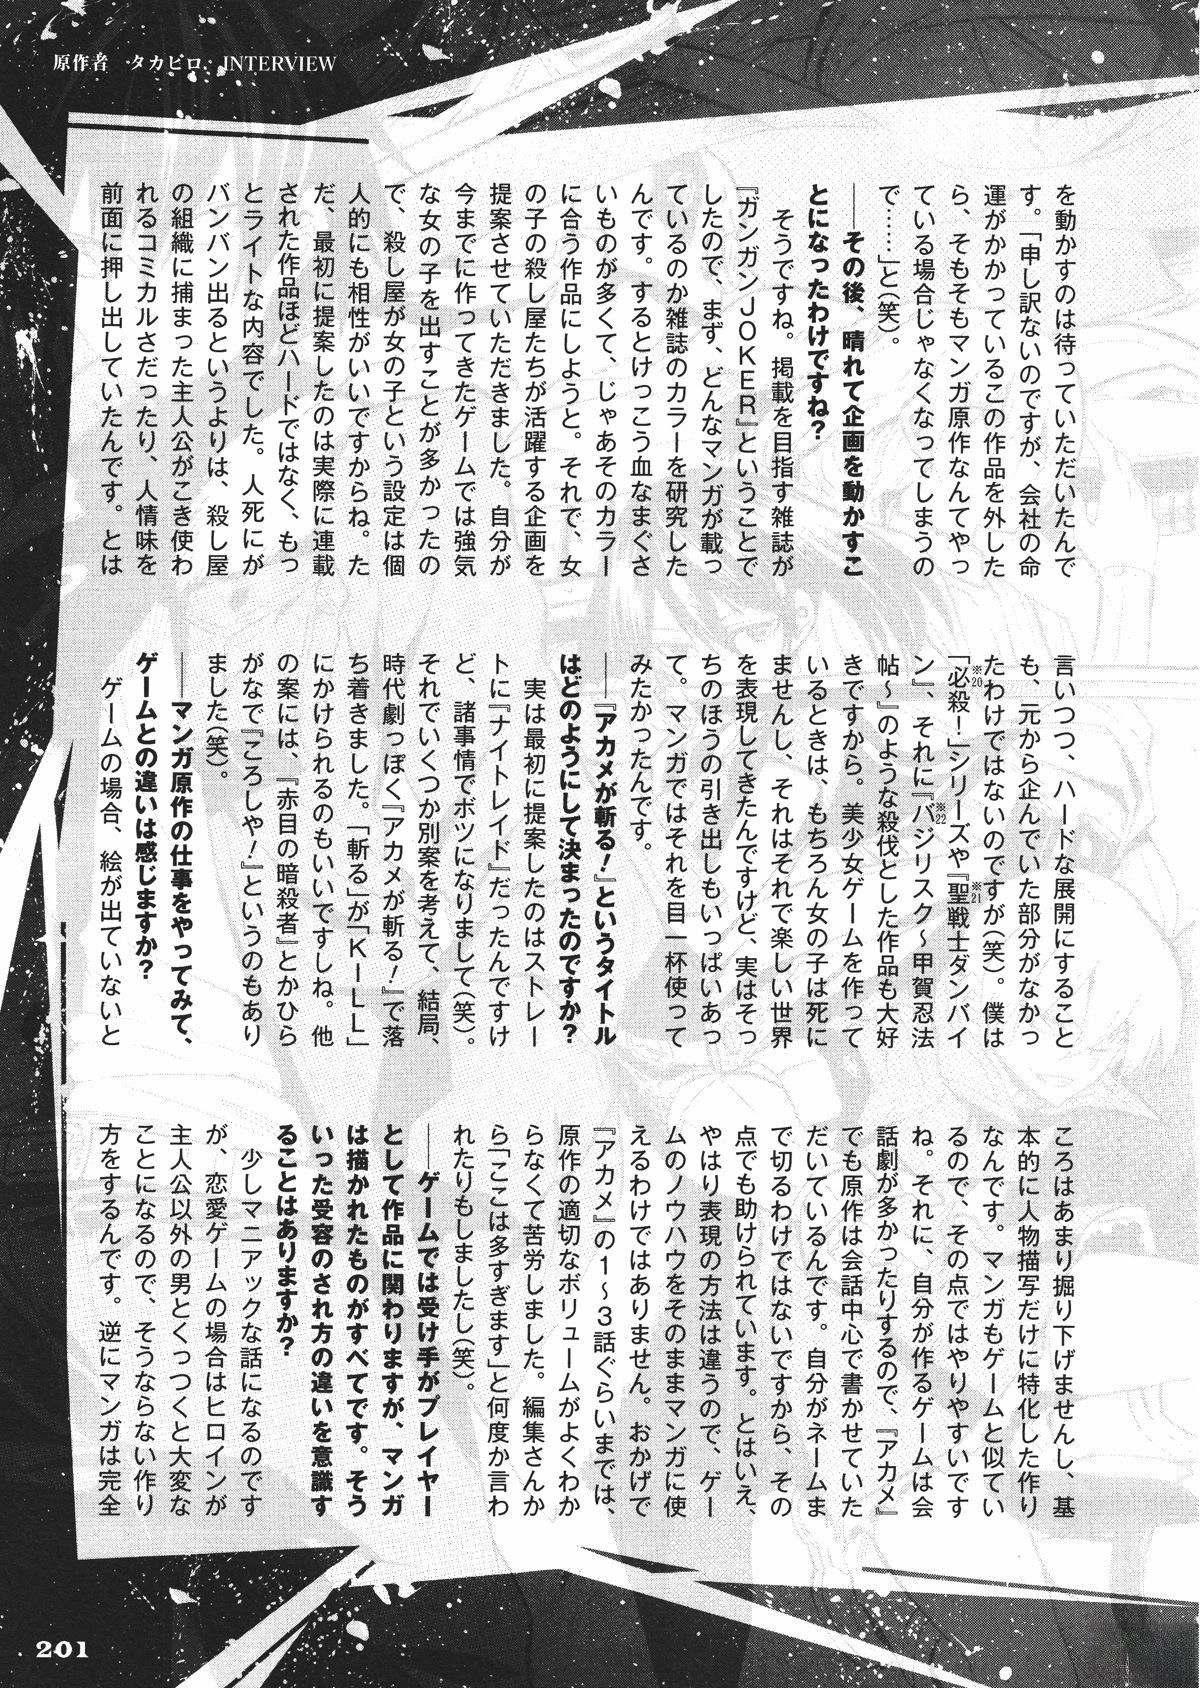 原作者　タカヒロ　INTERVIEW
を動かすのは待っていただいたんで
す。「申し訳ないのですが、会社の命
運がかかっているこの作品を外した
ら、そもそもマンガ原作なんてやっ
ている場合じゃなくなってしまうの
で……」と(笑)。
――その後、晴れて企画を動かすこ
とになったわけですね？
　そうですね。掲載を目指す雑誌が
『ガンガンJOKER』ということで
したので、まず、どんなマンガが載っ
ているのか雑誌のカラーを研究した
んです。するとけっこう血なまぐさ
いものが多くて、じゃあそのカラー
に合う作品にしようと。それで、女
の子の殺し屋たちが活躍する企画を
提案させていただきました。自分が
今までに作ってきたゲームでは強気
な女の子を出すことが多かったの
で、殺し屋が女の子という設定は個
人的にも相性がいいですからね。た
だ、最初に提案したのは実際に連載
された作品ほどハードではなく、もっ
とライトな内容でした。人死にが
バンバン出るというよりは、殺し屋
の組織に捕まった主人公がこき使わ
れるコミカルさだったり、人情味を
前面に押し出していたんです。とは
言いつつ、ハードな展開にすること
も、元から企んでいた部分がなかっ
たわけではないのですが(笑)。僕は
「必殺！」シリーズや『聖戦士ダンバイ
※20
※21
ン』、それに『バジリスク～甲賀忍法
※22
帖～』のような殺伐とした作品も大好
きですから。美少女ゲームを作って
いるときは、もちろん女の子は死に
ませんし、それはそれで楽しい世界
を表現してきたんですけど、実はそっ
ちのほうの引き出しもいっぱいあっ
て。マンガではそれを目一杯使って
みたかったんです。
――『アカメが斬る！』というタイトル
はどのようにして決まったのですか？
　実は最初に提案したのはストレー
トに『ナイトレイド』だったんですけ
ど、諸事情でボツになりまして(笑)。
それでいくつか別案を考えて、結局、
時代劇っぽく『アカメが斬る！』で落
ち着きました。「斬る」が「KILL」
にかけられるのもいいですしね。他
の案には、『赤目の暗殺者』とかひら
がなで『ころしや！』というのもあり
ました(笑)。
――マンガ原作の仕事をやってみて、
ゲームとの違いは感じますか？
　ゲームの場合、絵が出ていないと
ころはあまり掘り下げませんし、基
本的に人物描写だけに特化した作り
なんです。マンガもゲームと似てい
るので、その点ではやりやすいです
ね。それに、自分が作るゲームは会
話劇が多かったりするので、『アカメ』
でも原作は会話中心で書かせていた
だいているんです。自分がネームま
で切るわけではないですから、その
点でも助けられています。とはいえ、
やはり表現の方法は違うので、ゲー
ムのノウハウをそのままマンガに使
えるわけではありません。おかげで
『アカメ』の1～3話ぐらいまでは、
原作の適切なボリュームがよくわか
らなくて苦労しました。編集さんか
ら「ここは多すぎます」と何度か言わ
れたりもしましたし(笑)。
――ゲームでは受け手がプレイヤー
として作品に関わりますが、マンガ
は描かれたものがすべてです。そう
いった受容のされ方の違いを意識す
ることはありますか？
　少しマニアックな話になるのです
が、恋愛ゲームの場合はヒロインが
主人公以外の男とくっつくと大変な
ことになるので、そうならない作り
方をするんです。逆にマンガは完全
201